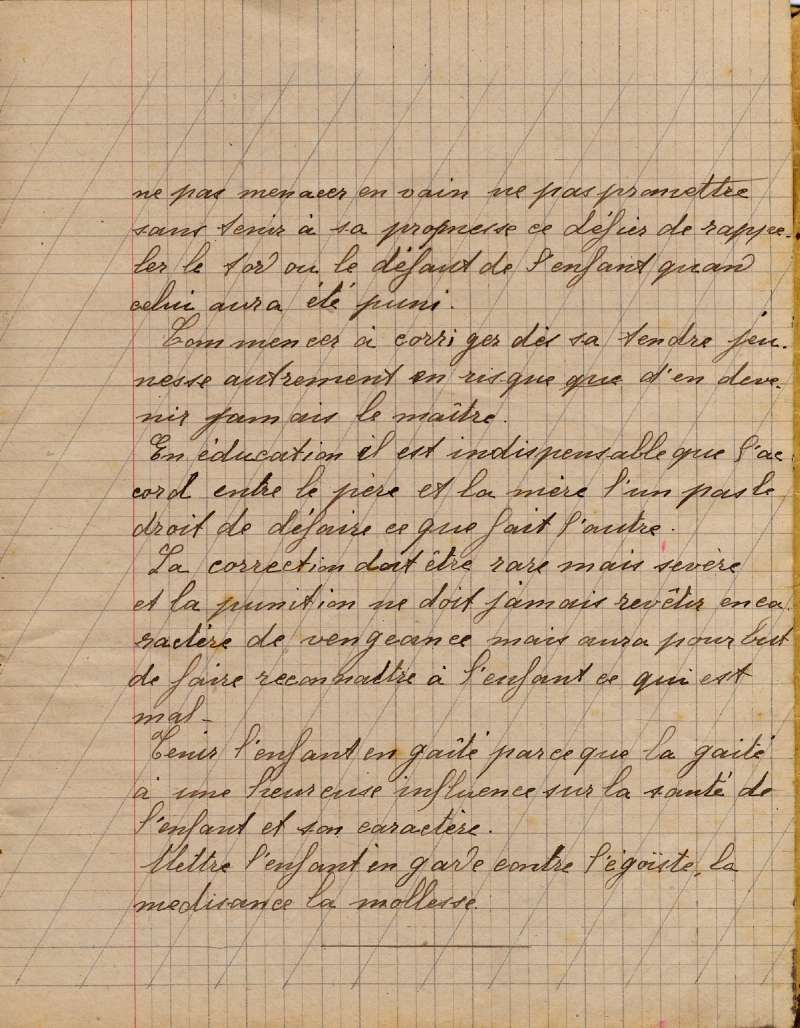 ne pas menacer en vain ne pas promettre
sans tenir à sa promesse ce défier de rappe-
ler le tord ou le défaut de l'enfant quand
celui aura été puni.
Commencer à corriger dès sa tendre jeu-
nesse autrement on risque que d'en deve-
nir jamais le maître.
En éducation il est indispensable que l'ac
cord entre le père et la mère l'un pas le
droit de défaire ce que fait l'autre.
La correction doit être rare mais sevère
et la punition ne doit jamais revêtir en ca
ractère de vengeance mais aura pour but
de faire reconnaître à l'enfant ce qui est
mal-
Tenir l'enfant en gaîté parce que la gaité
à une heureuse influence sur la santé de
l'enfant et son caractère.
Mettre l'enfant en garde contre l'égoïste, la
medisance la mollesse.